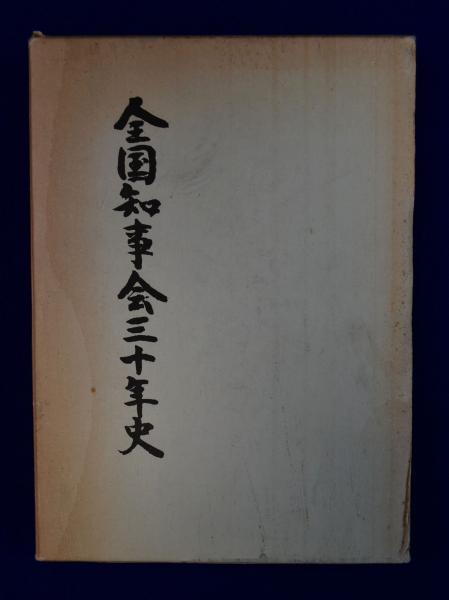 全国知事会三十年史